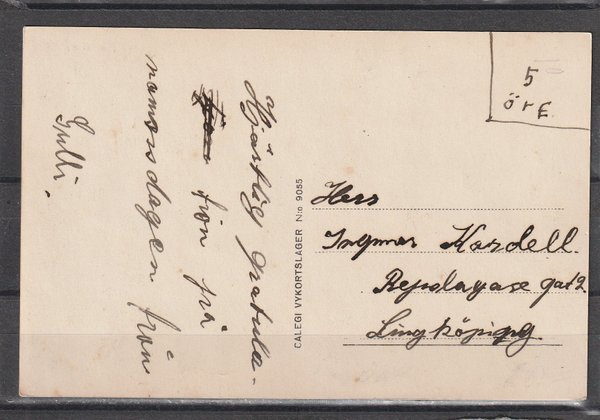 Hjärtlig gratula-
tion på
namnsdagen från
Gulli.
CALEGI VYKORTSLAGER N:o 9055
5
öre
Herr
Ingmar Kardell
Repslagare gat 2
Lingköping